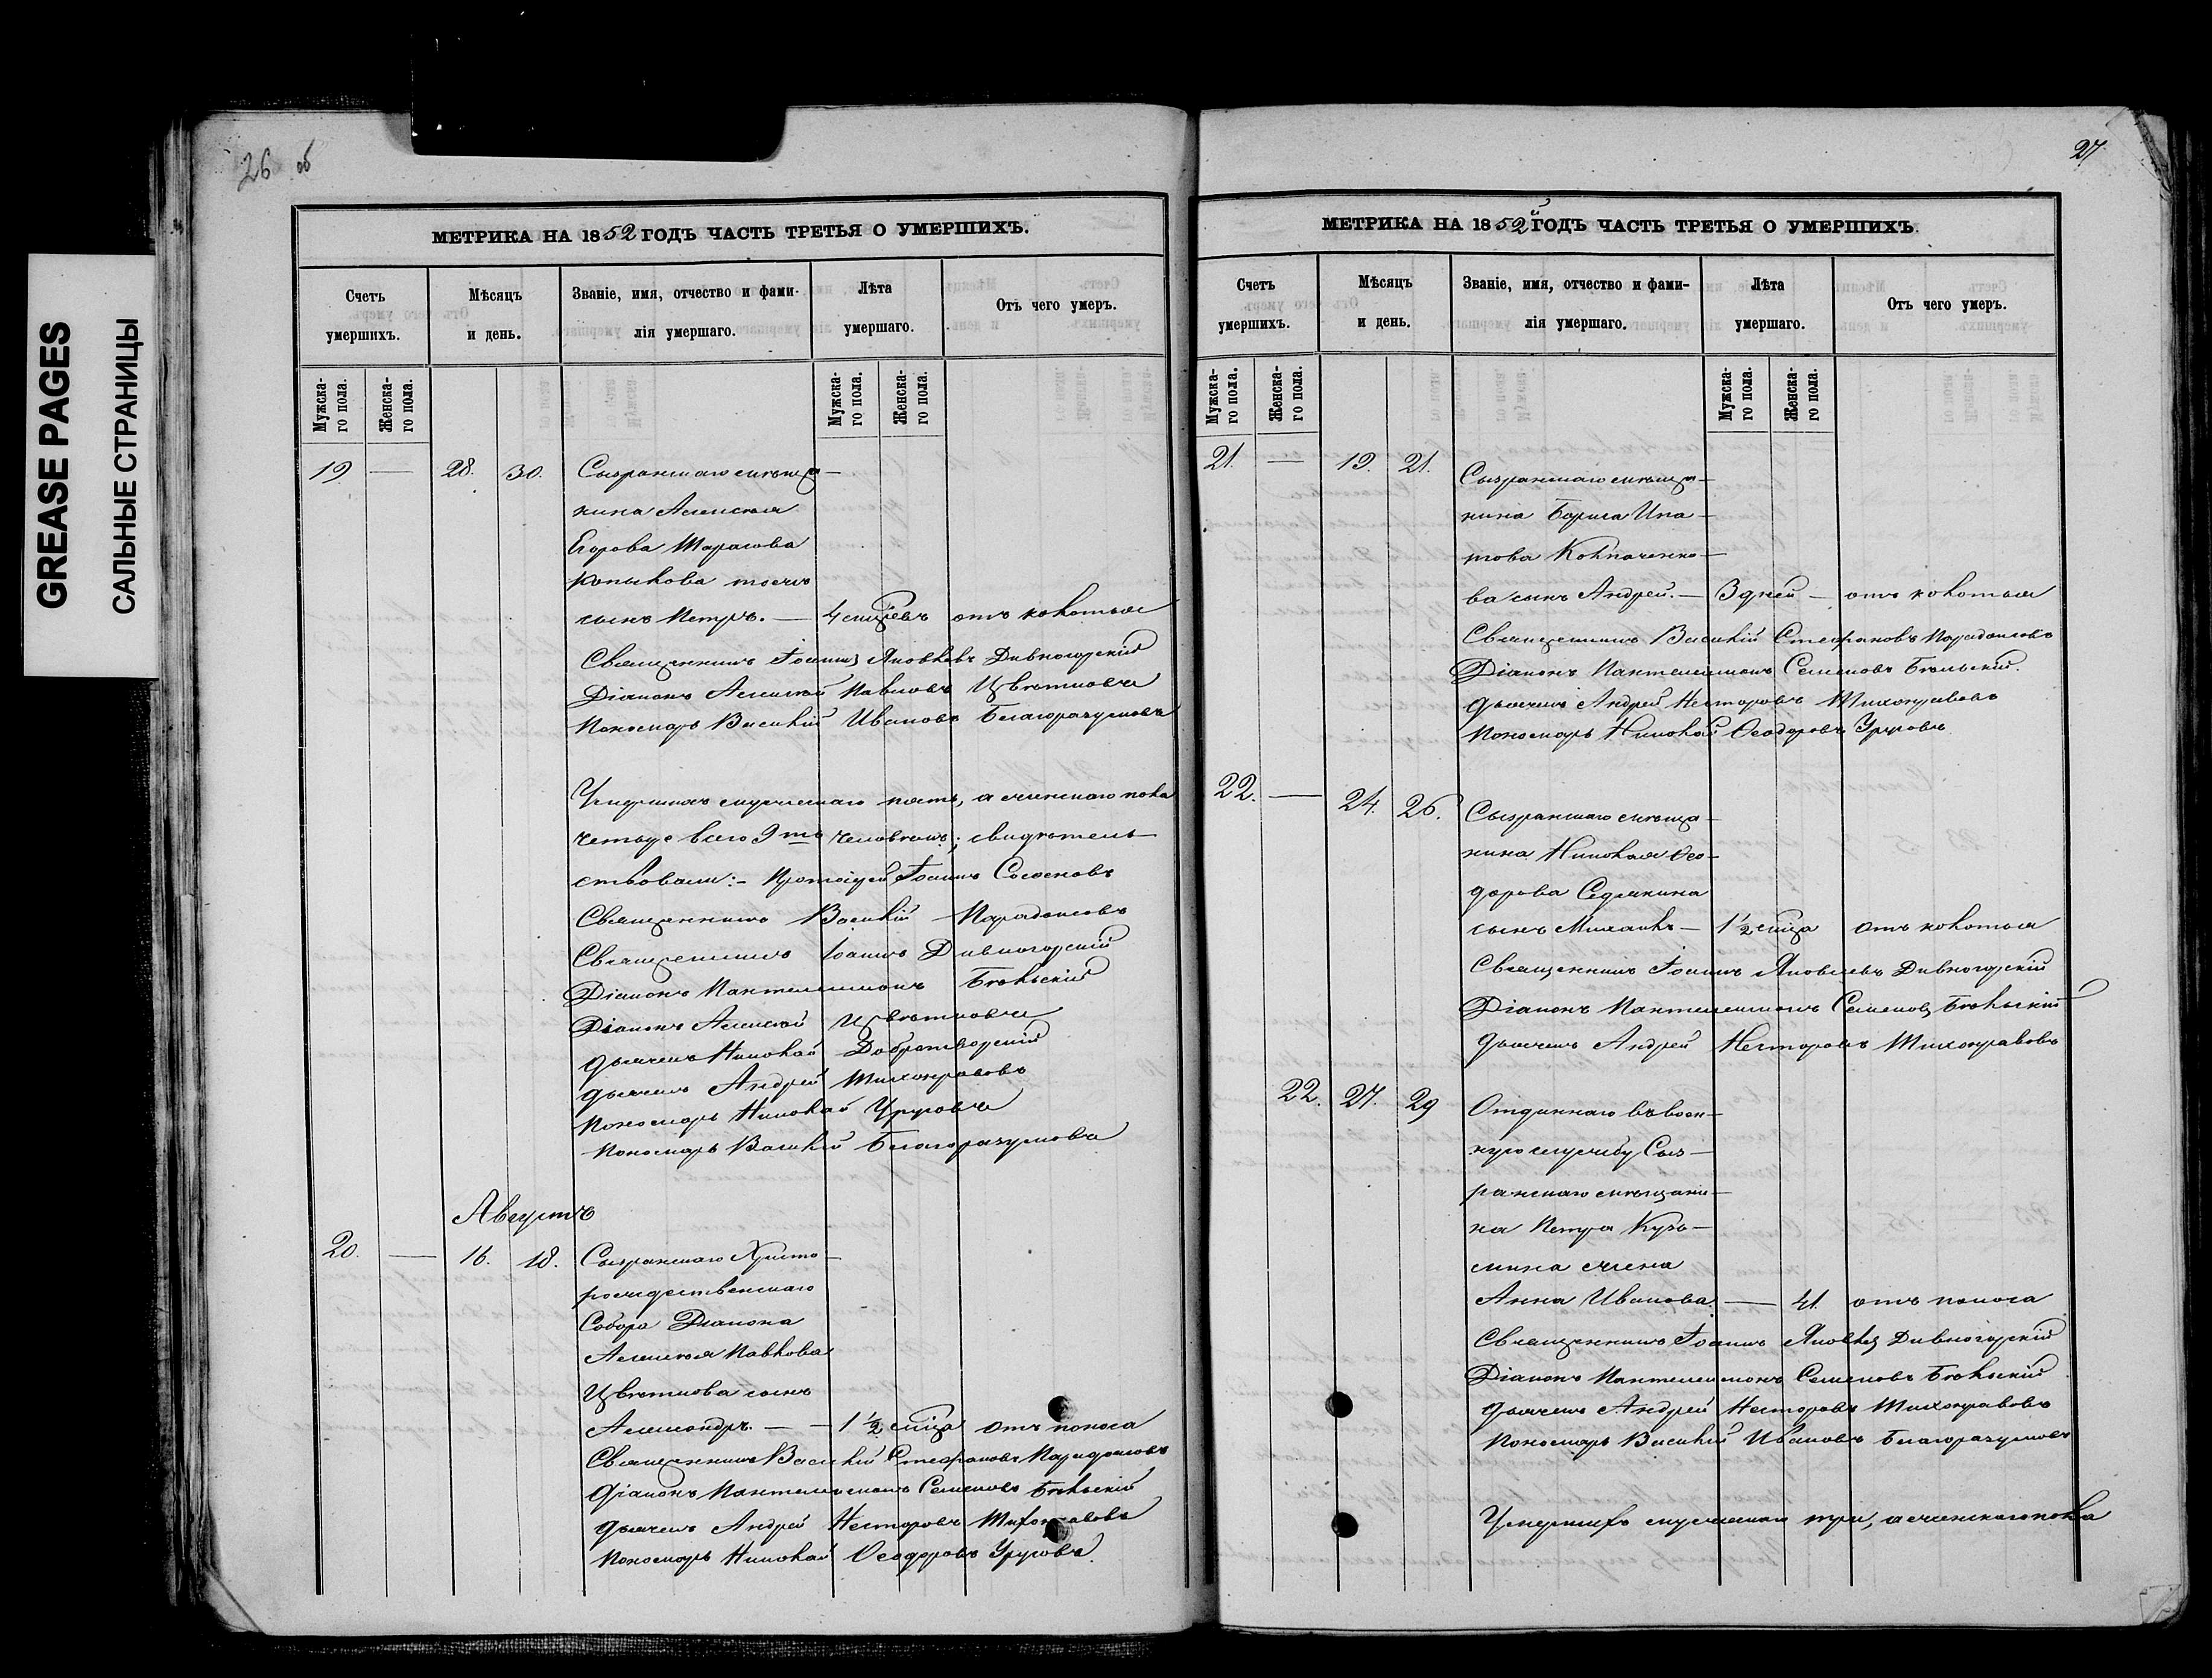 GREASE PAGES
САЛЬНЫЕ СТРАНИЦЫ
26 об
МЕТРИКА НА 1852 ГОДЪ ЧАСТЬ ТРЕТЬЯ О УМЕРШИХЪ.
Счетъ умершихъ.
Мѣсяцъ и день.
Званіе, имя, отчество и фами-
лія умершаго.
Лѣта умершаго.
Отъ чего умеръ.
Мужска-
го пола.
Женска-
го пола.
Мужска-
го пола.
Женска-
го пола.
19 — 28. 30. Сызранскаго мѣща-
нина Алексѣя
Егорова Тарасова
Копылова тожъ
сынъ Петръ. — 4 мцевъ отъ колотья
Священникъ Іоаннъ Яковлевъ Дивногорскій
Діаконъ Алексѣй Павловъ Цвѣтковъ
Пономарь Василій Ивановъ Благоразумовъ
Умершихъ мужескаго пять, а женскаго пола
четыре всего 9ть человѣкъ; свидѣтель-
ствовали:- Протоіерей Іоаннъ Сосновъ
Священникъ Василій Парадоксовъ
Священникъ Іоаннъ Дивногорскій
Діаконъ Пантелеимонъ Бѣльскій
Діаконъ Алексѣй Цвѣтковъ
дьячекъ Николай Добротворскій
дьячекъ Андрей Тихонравовъ
Пономарь Николай Урусовъ
Пономарь Василій Благоразумовъ
Августъ
20. — 16. 18. Сызранскаго Христо-
рождественскаго
Собора Діакона
Алексѣя Павлова
Цвѣткова сынъ
Александръ. — 1 ½ мца отъ поноса
Священникъ Василій Стефановъ Парадоксовъ
Діаконъ Пантелеимонъ Семеновъ Бѣльскій
дьячекъ Андрей Несторовъ Тихонравовъ
Пономарь Николай Ѳеодоровъ Урусовъ.
27
МЕТРИКА НА 1852й ГОДЪ ЧАСТЬ ТРЕТЬЯ О УМЕРШИХЪ.
Счетъ умершихъ.
Мѣсяцъ и день.
Званіе, имя, отчество и фами-
лія умершаго.
Лѣта умершаго.
Отъ чего умеръ.
Мужска-
го пола.
Женска-
го пола.
Мужска-
го пола.
Женска-
го пола.
21. — 19. 21. Сызранскаго мѣща-
нина Бориса Ипа-
това Колпаченко-
ва сынъ Андрей. — 3 дней — отъ колотья
Священникъ Василій Стефановъ Парадоксовъ
Діаконъ Пантелеимонъ Семеновъ Бѣльскій.
дьячекъ Андрей Несторовъ Тихонравовъ
Пономарь Николай Ѳеодоровъ Урусовъ.
22. — 24. 26. Сызранскаго мѣща-
нина Николая Ѳео-
дорова Седякина
сынъ Михаилъ — 1 ½ мца отъ колотья
Священникъ Іоаннъ Яковлевъ Дивногорскій
Діаконъ Пантелеимонъ Семеновъ Бѣльскій
дьячекъ Андрей Несторовъ Тихонравовъ
22. 27. 29 Отданнаго въ воен-
ную службу Сыз-
ранскаго мѣщани-
на Петра Кузь-
мина жена
Анна Иванова. — 41. отъ поноса
Священникъ Іоаннъ Яковлевъ Дивногорскій
Діаконъ Пантелеимонъ Семеновъ Бѣльскій
дьячекъ Андрей Несторовъ Тихонравовъ
Пономарь Василій Ивановъ Благоразумовъ
Умершихъ мужескаго три, а женскаго пола